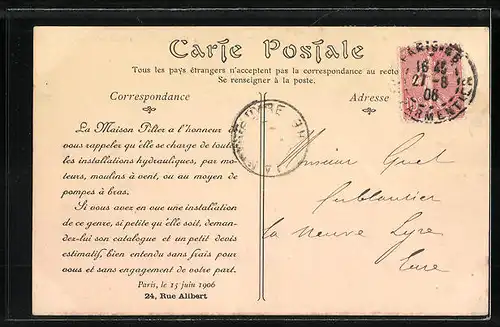 Carte Postale
Tous les pays étrangers n'acceptent pas la correspondance au recto
Se renseigner à la poste.
Correspondance
Adresse
La Maison Pilter a l'honneur de
vous rappeler qu'elle se charge de toutes
les installations hydrauliques, par mo-
teurs, moulins à vent, ou au moyen de
pompes à bras.
Si vous avez en vue une installation
de ce genre, si petite qu'elle soit, deman-
dez-lui son catalogue et un petit devis
estimatif, bien entendu sans frais pour
vous et sans engagement de votre part.
Paris, le 15 juin 1906
24, Rue Alibert
PARIS
16 45
27 - 6
06
PARMENTIER
LYRE
Monsieur
Ferblantier
La Neuve Lyre
Eure